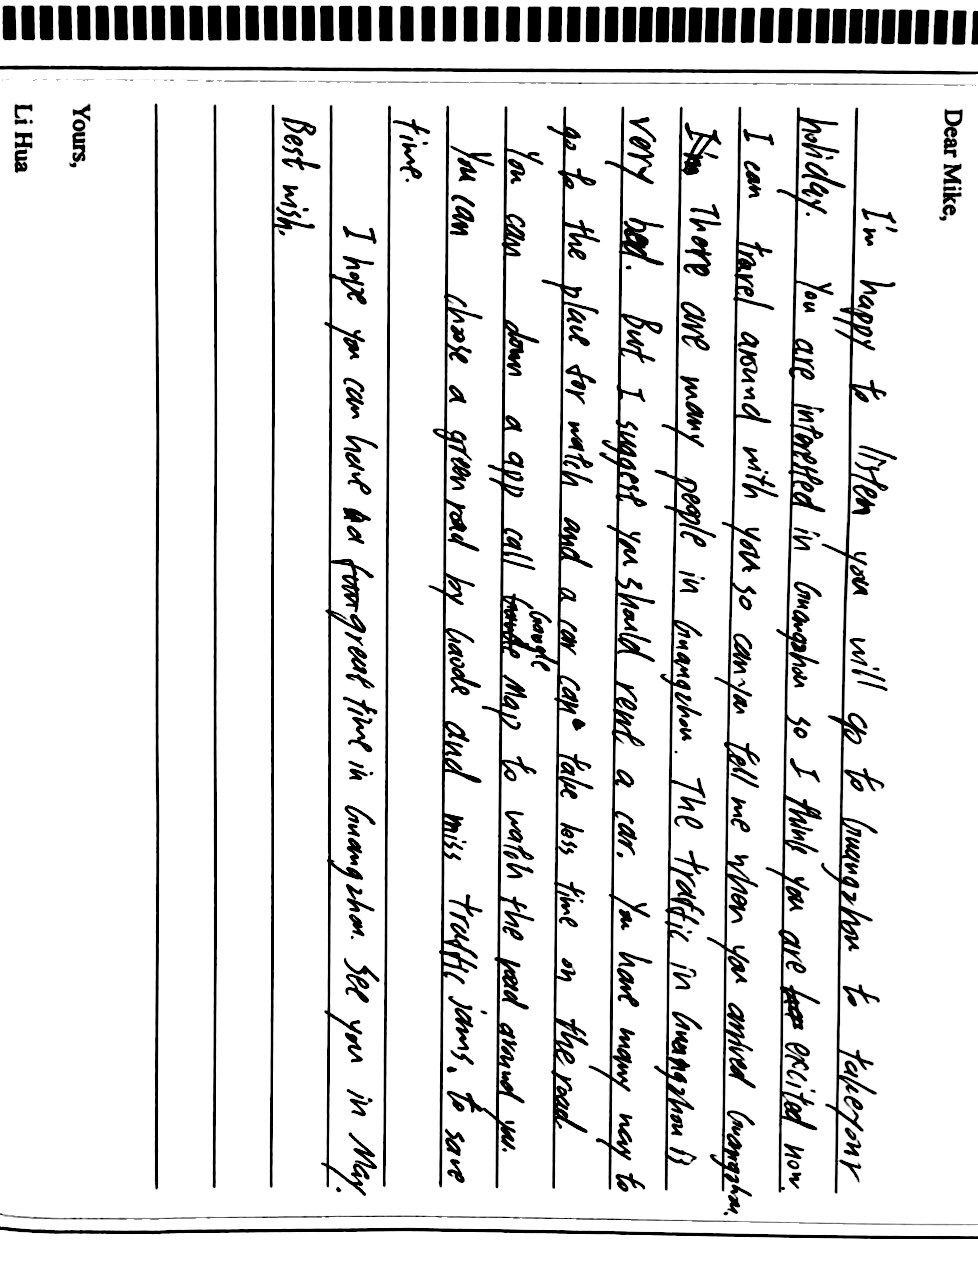 Dear Mike,
I'm happy to listen you will go to Guangzhou to take your
holiday. You are interested in Guangzhou so I think you are excited now.
I can travel around with you so can you tell me when you arrived Guangzhou.
There are many people in Guangzhou. The traffic in Guangzhou is
very bad. But I suggest you should rent a car. You have many way to
go to the place for watch and a car can take less time on the road.
You can down a app call Gaode Map to watch the road around you.
You can choose a green road by Gaode and miss traffic jams. to save
time.
I hope you can have a great time in Guangzhou. See you in May.
Best wish.
Yours,
Li Hua